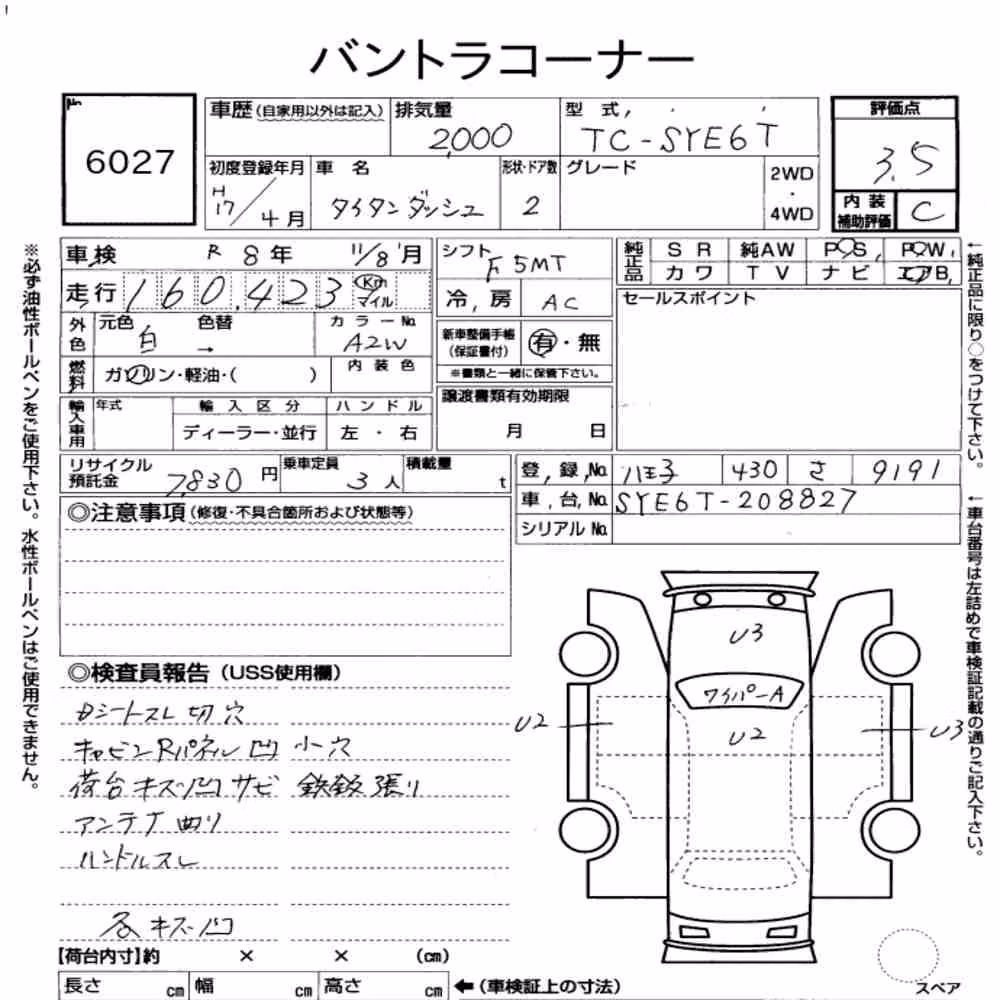 バントラコーナー
No.
6027
車歴 (自家用以外は記入)
排気量
2,000
型式
TC-SYE6T
評価点
3.5
初度登録年月
H
17/4月
車名
タイタンダッシュ
形状・ドア数
2
グレード
2WD
・
4WD
内装
補助評価
C
車検
R 8年 11/8 月
走行
160,423
Km
マイル
外色
元色
白
色替
→
カラーNo.
A2W
燃料
ガソリン・軽油・( )
内装色
輸入車用
年式
輸入区分
ディーラー・並行
ハンドル
左・右
シフト
F 5MT
冷房
AC
新車整備手帳
(保証書付)
有・無
※書類と一緒に保管下さい。
譲渡書類有効期限
月 日
純正品
SR 純AW PS PW
カワ TV ナビ エアB
セールスポイント
リサイクル
預託金
7,830円
乗車定員
3人
積載量
t
登録No.
八王子 430 さ 9191
車台No.
SYE6T-208827
シリアルNo.
◎注意事項 (修復・不具合箇所および状態等)
◎検査員報告 (USS使用欄)
Dシートスレ 切 穴
キャビンRパネル凹 小穴
荷台 キズ凹 サビ 鉄鈑張り
アンテナ曲り
ハンドルスレ
各キズ・凹
U3
ワイパーA
U2
U2
U3
【荷台内寸】約 × × (cm)
長さ cm
幅 cm
高さ cm
←(車検証上の寸法)
スペア
※必ず油性ボールペンをご使用下さい。水性ボールペンはご使用できません。
←純正品に限り○をつけて下さい。
←車台番号は左詰めで車検証記載の通りご記入下さい。